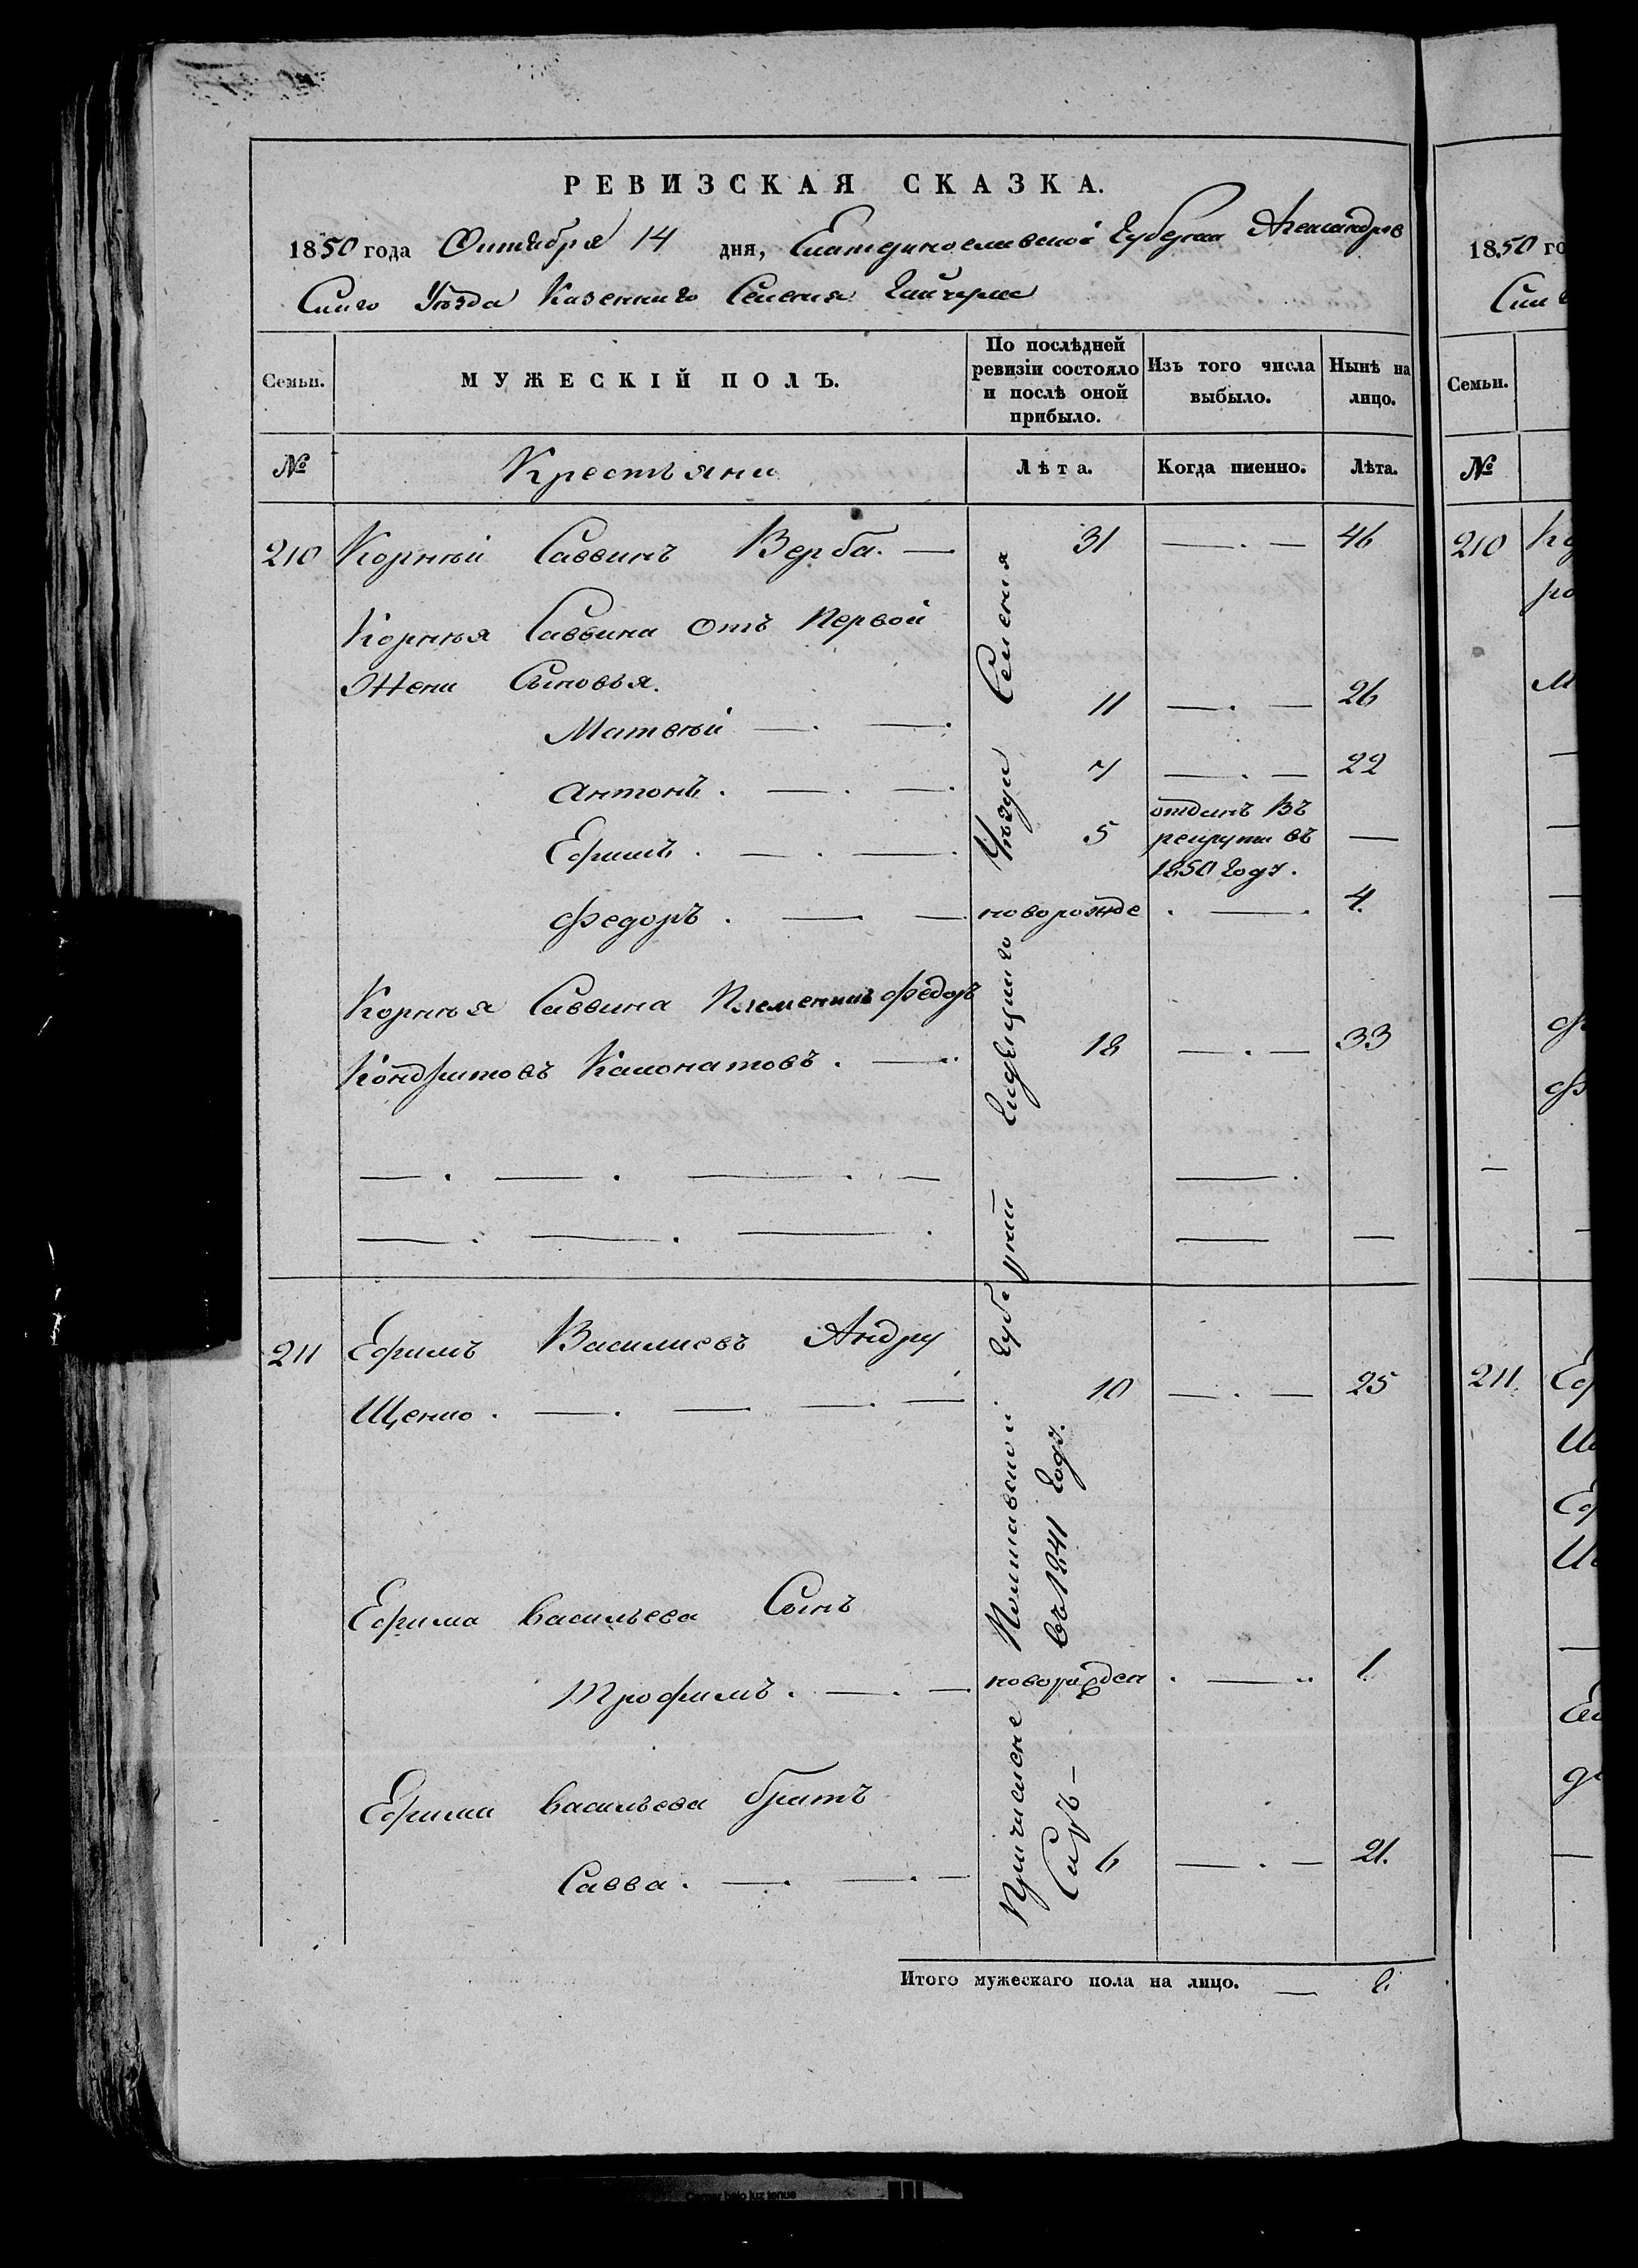 РЕВИЗСКАЯ СКАЗКА.
1850 года Октября 14 дня, Екатеринославской Губернии Александров
Скаго Уѣзда Казеннаго Селения Гайчула
Семьи.
МУЖЕСКІЙ ПОЛЪ.
По послѣдней ревизіи состояло и послѣ оной прибыло.
Изъ того числа выбыло.
Нынѣ на лицо.
№
Крестьяни
Лѣта.
Когда именно.
Лѣта.
210 Корнѣй Саввинъ Верба. — 31 —.— 46
Корнѣя Саввина отъ Первой
Жени Сыновья.
Матвѣй —. —. 11 —.— 26
Антонъ. —. —. 7 —.— 22
Ефимъ. —. —. 5 отданъ въ —
рекруты въ
1850 году.
Федоръ. —. — новорожде . —. 4.
Корнѣя Саввина Племенникъ Федоръ
Кондратовъ —. 18 —.— 33
211 Ефимъ Василиевъ Андру
Щенко. —. — —. — 10 —.— 25
Ефима Васильева Сынъ
Трофимъ. —. — новорожден . —.. 1
Ефима Васильева братъ
Савва. —. —.— 6 —.— 21.
Причислене Полтавской Губерний Уѣзда Селения
Сюда — въ 1841 году.
Итого мужескаго пола на лицо. — 8.
1850 го
Семьи.
№
210
211.